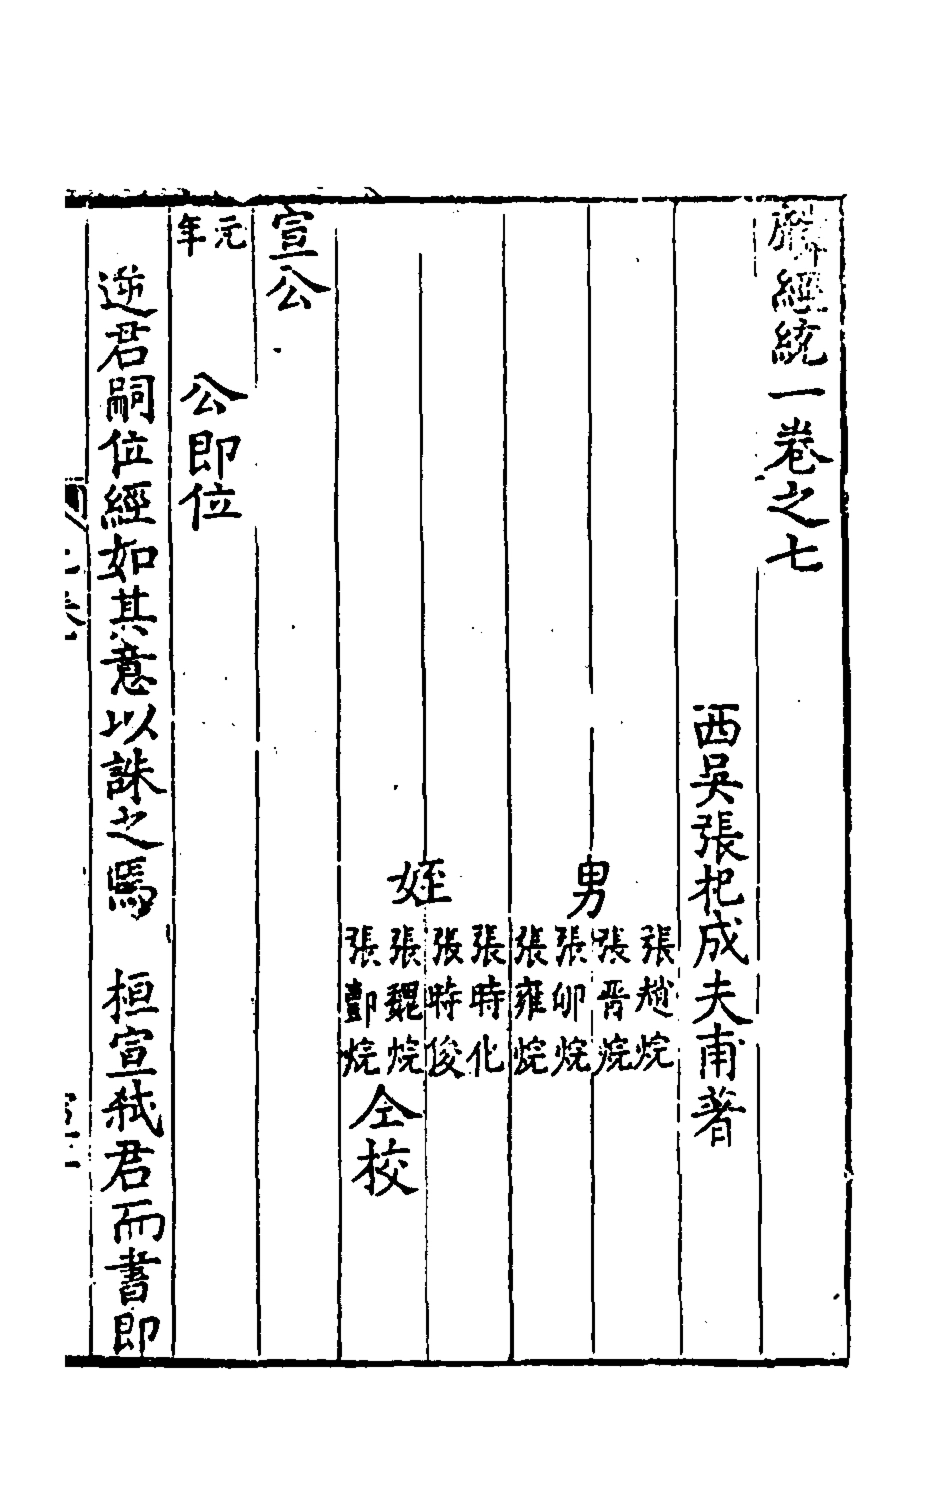 麟經統一卷之七
西吳張杞成夫甫著
男
張趙烷
張晋烷
張卬烷
張雍烷
姪
張時化
張時俊
張魏烷
張酆烷
仝校
宣公
元年 公即位
逆君嗣位經如其意以誅之焉 桓宣弑君而書即